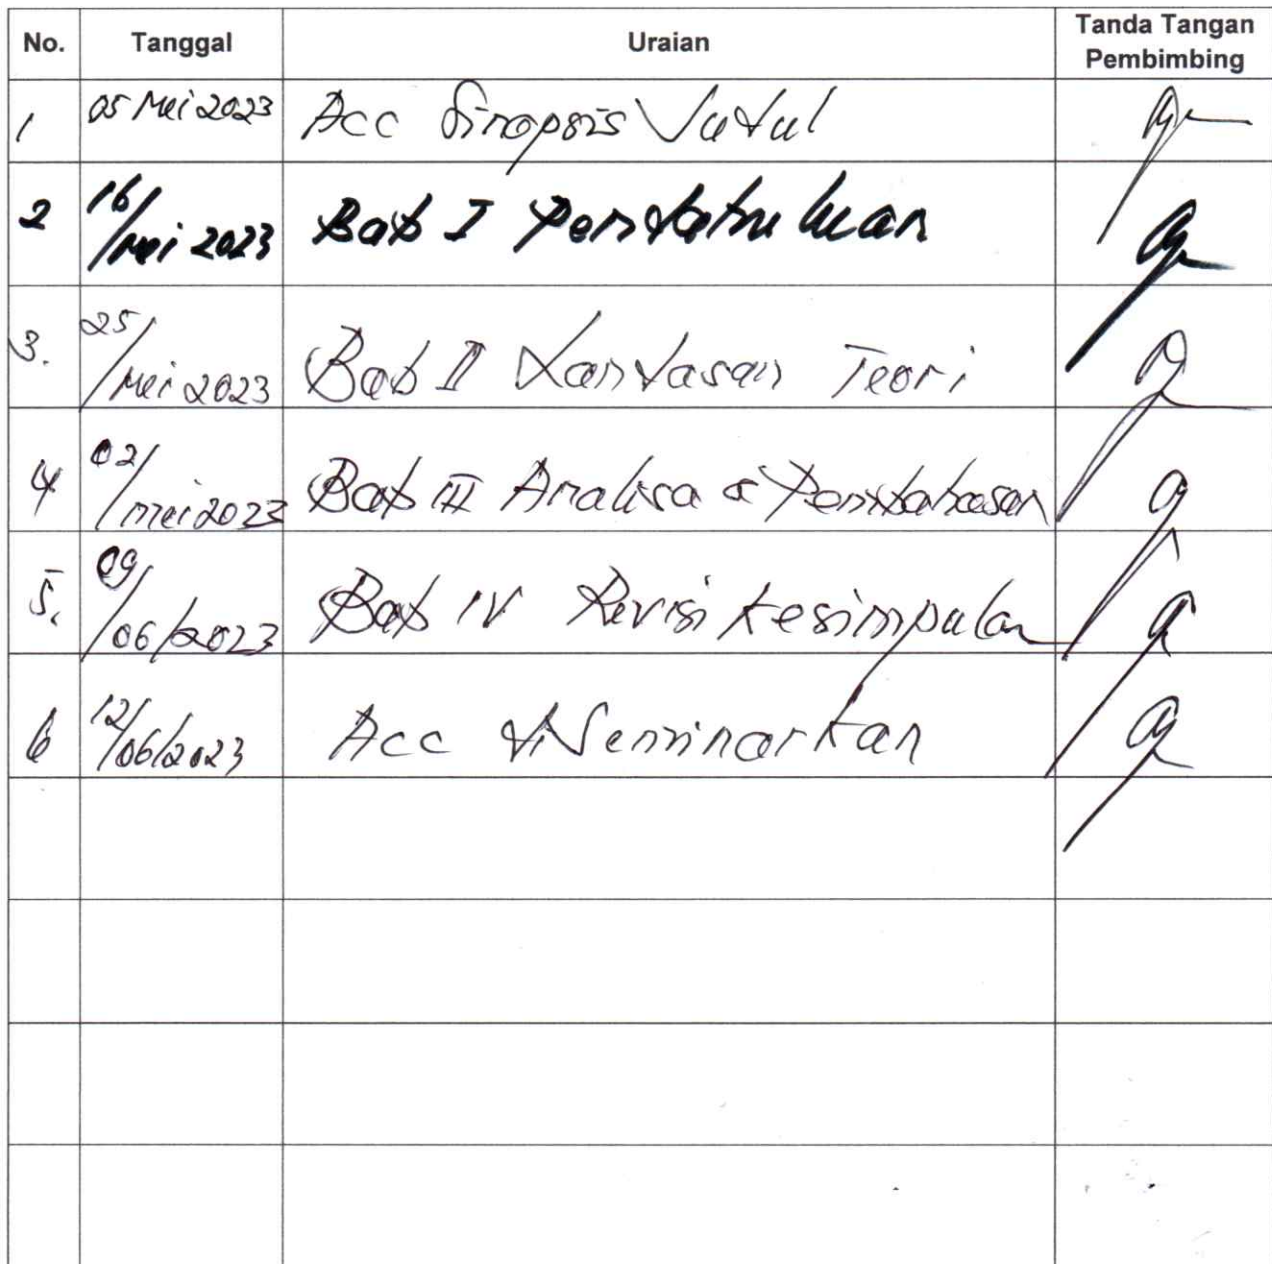 No. Tanggal Uraian Tanda Tangan Pembimbing
1 05 Mei 2023 Acc Sinopsis Judul
2 16/Mei 2023 Bab I Pendahuluan
3. 25/Mei 2023 Bab II Landasan Teori
4 02/Mei 2023 Bab III Analisa & Pembahasan
5. 09/06/2023 Bab IV Revisi Kesimpulan
6 12/06/2023 Acc diSeminarkan